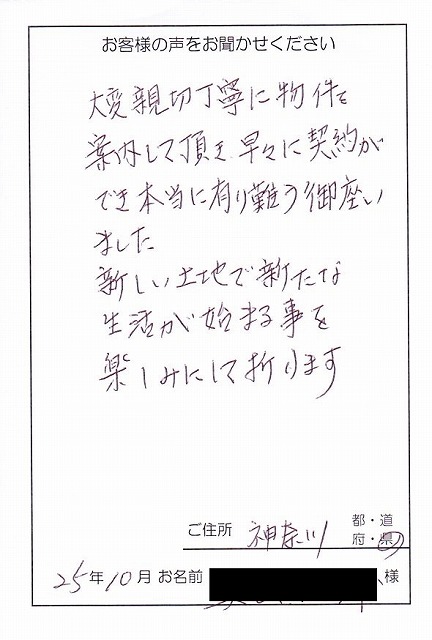 お客様の声をお聞かせください
大変親切丁寧に物件を
案内して頂き、早々に契約が
でき本当に有り難う御座い
ました
新しい土地で新たな
生活が始まる事を
楽しみにして折ります
ご住所 神奈川 都・道
府・県
25年10月 お名前 様